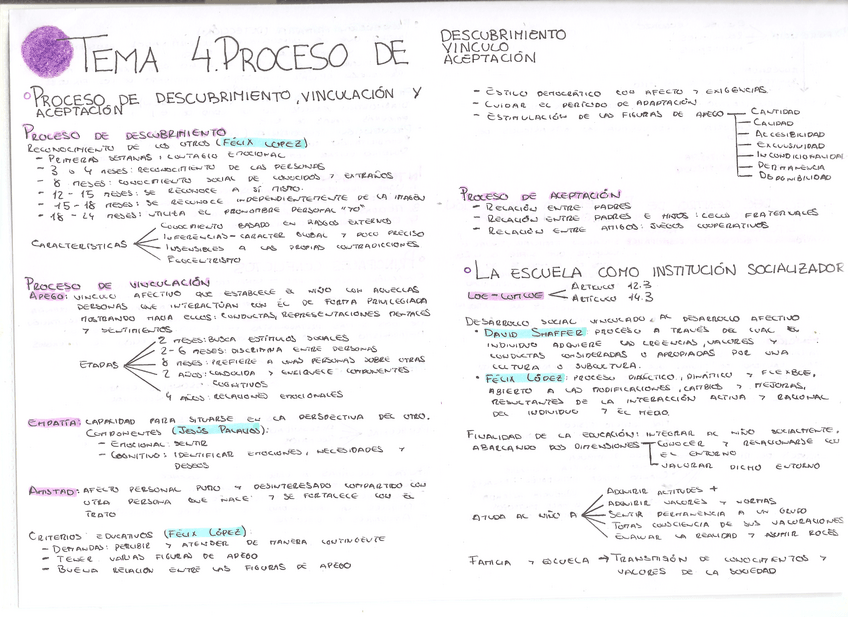 TEMA 4. PROCESO DE
DESCUBRIMIENTO
VINCULO
ACEPTACIÓN
PROCESO DE DESCUBRIMIENTO, VINCULACIÓN Y
ACEPTACIÓN
PROCESO DE DESCUBRIMIENTO
RECONOCIMIENTO DE LOS OTROS (FÉLIX LÓPEZ)
- PRIMERAS SEMANAS: CONTAGIO EMOCIONAL
- 3 o 4 MESES: RECONOCIMIENTO DE LAS PERSONAS
- 8 MESES: CONOCIMIENTO SOCIAL DE CONOCIDOS Y EXTRAÑOS
- 12-15 MESES: SE RECONOCE A SÍ MISMO.
- 15-18 MESES: SE RECONOCE INDEPENDIENTEMENTE DE LA IMAGEN
- 18-24 MESES: UTILIZA EL PRONOMBRE PERSONAL "YO"
CARACTERÍSTICAS
CONOCIMIENTO BASADO EN RASGOS EXTERNOS
INFERENCIAS - CARACTER GLOBAL Y POCO PRECISO
INSENSIBLES A LAS PROPIAS CONTRADICCIONES
EGOCENTRISMO
PROCESO DE VINCULACIÓN
APEGO: VINCULO AFECTIVO QUE ESTABLECE EL NIÑO CON AQUELLAS
PERSONAS QUE INTERACTÚAN CON ÉL DE FORMA PRIVILEGIADA
MOSTRANDO HACIA ELLOS: CONDUCTAS, REPRESENTACIONES MENTALES
Y SENTIMIENTOS
ETAPAS
2 MESES: BUSCA ESTÍMULOS SOCIALES
2-6 MESES: DISCRIMINA ENTRE PERSONAS
8 MESES: PREFIERE A UNAS PERSONAS SOBRE OTRAS
2 AÑOS: CONSOLIDA Y ENRIQUECE COMPONENTES
COGNITIVOS
4 AÑOS: RELACIONES EMOCIONALES
EMPATÍA: CAPACIDAD PARA SITUARSE EN LA PERSPECTIVA DEL OTRO.
COMPONENTES (JESÚS PALACIOS):
- EMOCIONAL: SENTIR
- COGNITIVO: IDENTIFICAR EMOCIONES, NECESIDADES Y
DESEOS
AMISTAD: AFECTO PERSONAL PURO Y DESINTERESADO COMPARTIDO CON
OTRA PERSONA QUE NACE Y SE FORTALECE CON EL
TRATO
CRITERIOS EDUCATIVOS (FÉLIX LÓPEZ)
- DEMANDAS: PERCIBIR Y ATENDER DE MANERA CONTINGENTE
- TENER VARIAS FIGURAS DE APEGO
- BUENA RELACIÓN ENTRE LAS FIGURAS DE APEGO
- ESTILO DEMOCRÁTICO CON AFECTO Y EXIGENCIAS
- CUIDAR EL PERÍODO DE ADAPTACIÓN
- ESTIMULACIÓN DE LAS FIGURAS DE APEGO
CANTIDAD
CALIDAD
ACCESIBILIDAD
EXCLUSIVIDAD
INCONDICIONALIDAD
PERMANENCIA
DISPONIBILIDAD
PROCESO DE ACEPTACIÓN
- RELACIÓN ENTRE PADRES
- RELACIÓN ENTRE PADRES E HIJOS: CELOS FRATERNALES
- RELACIÓN ENTRE AMIGOS: JUEGOS COOPERATIVOS
LA ESCUELA COMO INSTITUCIÓN SOCIALIZADOR
LOE-LOMLOE
ARTÍCULO 12.3
ARTÍCULO 14.3
DESARROLLO SOCIAL VINCULADO AL DESARROLLO AFECTIVO
• DAVID SHAFFER: PROCESO A TRAVÉS DEL CUAL EL
INDIVIDUO ADQUIERE LAS CREENCIAS, VALORES Y
CONDUCTAS CONSIDERADAS O APROPIADAS POR UNA
CULTURA O SUBCULTURA.
• FÉLIX LÓPEZ: PROCESO DIALÉCTICO, DINÁMICO Y FLEXIBLE,
ABIERTO A LAS MODIFICACIONES, CAMBIOS Y MEJORAS,
RESULTANTES DE LA INTERACCIÓN ACTIVA Y RACIONAL
DEL INDIVIDUO Y EL MEDIO.
FINALIDAD DE LA EDUCACIÓN: INTEGRAR AL NIÑO SOCIALMENTE,
ABARCANDO DOS DIMENSIONES
CONOCER Y RELACIONARSE CON
EL ENTORNO
VALORAR DICHO ENTORNO
AYUDA AL NIÑO A
ADQUIRIR ACTITUDES +
ADQUIRIR VALORES Y NORMAS
SENTIR PERMANENCIA A UN GRUPO
TOMAS CONSCIENCIA DE SUS VALORACIONES
EVALUAR LA REALIDAD Y ASUMIR ROLES
FAMILIA Y ESCUELA → TRANSMISIÓN DE CONOCIMIENTOS Y
VALORES DE LA SOCIEDAD